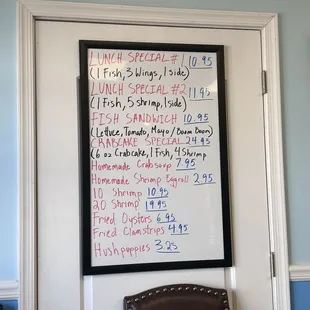 LUNCH SPECIAL #1 10.95
(1 Fish, 3 Wings, 1 side)
LUNCH SPECIAL #2 11.95
(1 Fish, 5 shrimp, 1 side)
FISH SANDWICH 10.95
(Lettuce, Tomato, Mayo / Boom Boom)
CRABCAKE SPECIAL 24.95
(6 oz Crabcake, 1 Fish, 4 Shrimp
Homemade Crabsoup 7.95
Homemade Shrimp Eggroll 2.95
10 Shrimp 10.95
20 Shrimp 19.95
Fried Oysters 6.95
Fried Clamstrips 4.95
Hushpuppies 3.25